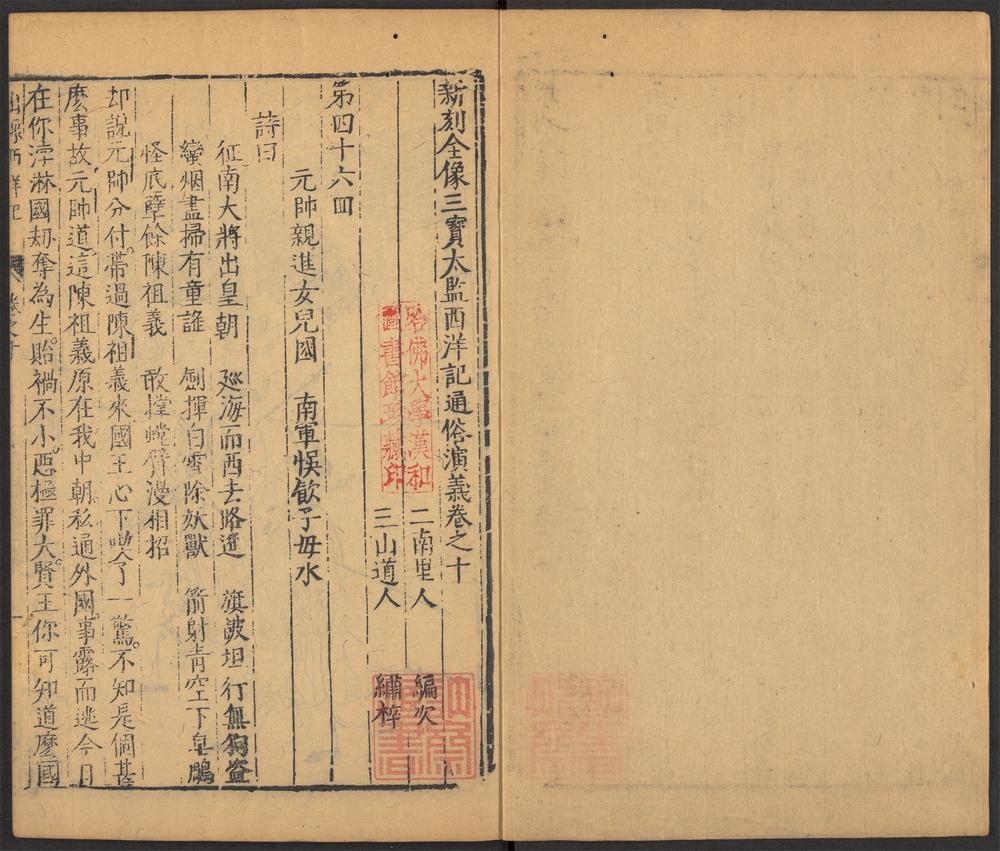 新刻全像三寶太監西洋記通俗演義卷之十
二南里人 編次
三山道人 繡梓
哈佛大學漢和
圖書館珍藏印
第四十六回
元帥親進女兒國 南軍悞飲子母水
詩曰
征南大將出皇朝 廵海而西去路遙 旗皷坦行無狗盜
蠻烟盡掃有童謠 劍揮白雪除妖獸 箭射青空下皂鵰
怪底孽餘陳祖義 敢撑螳臂漫相招
却說元帥分付帶過陳祖義來國王心下喫了一驚不知是個甚
麽事故元帥道這陳祖義原在我中朝私通外國事露而逃今日
在你浡淋國刼奪為生貽禍不小惡極罪大賢王你可知道麽國
出像西洋記 卷之十 一